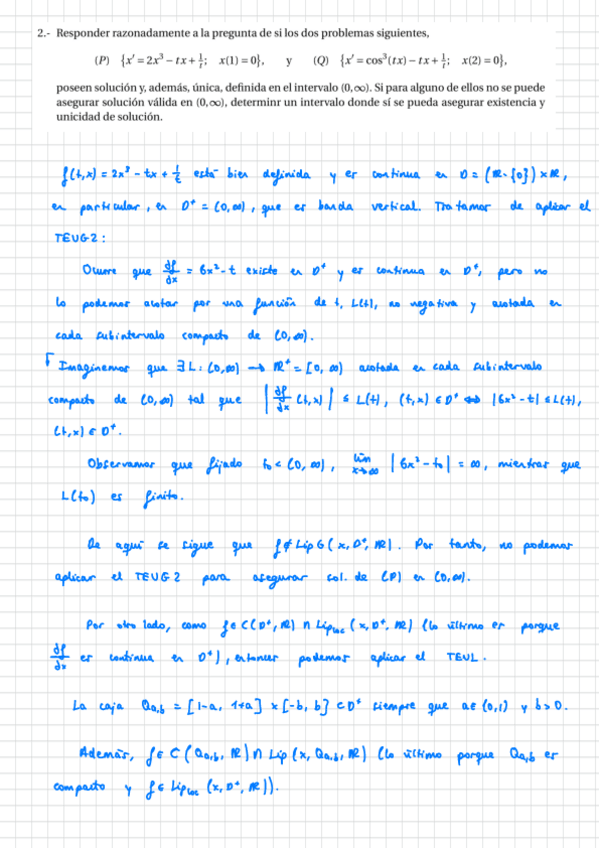 2.- Responder razonadamente a la pregunta de si los dos problemas siguientes,
(P) {x' = 2x³ − tx + 1/t; x(1) = 0}, y (Q) {x' = cos³(tx) − tx + 1/t; x(2) = 0},
poseen solución y, además, única, definida en el intervalo (0,∞). Si para alguno de ellos no se puede
asegurar solución válida en (0,∞), determinr un intervalo donde sí se pueda asegurar existencia y
unicidad de solución.
f(t,x) = 2x³ − tx + 1/t está bien definida y es continua en D = (ℝ-{0}) × ℝ,
en particular, en D⁺ = (0,∞), que es banda vertical. Tratamos de aplicar el
TEUG2:
Ocurre que df/dx = 6x² − t existe en D⁺ y es continua en D⁺, pero no
lo podemos acotar por una función de t, L(t), no negativa y acotada en
cada subintervalo compacto de (0,∞).
⌈ Imaginemos que ∃ L: (0,∞) → ℝ⁺ = [0, ∞) acotada en cada subintervalo
compacto de (0,∞) tal que |df/dx (t,x)| ≤ L(t), (t,x) ∈ D⁺ ⇔ |6x² − t| ≤ L(t),
(t,x) ∈ D⁺.
Observamos que fijado t₀ ∈ (0, ∞), lim x→∞ |6x² − t₀| = ∞, mientras que
L(t₀) es finito.
De aquí se sigue que f ∉ LipG (x, D⁺, ℝ). Por tanto, no podemos
aplicar el TEUG2 para asegurar sol. de (P) en (0,∞).
Por otro lado, como f ∈ C(D⁺, ℝ) ∩ Lip_loc (x, D⁺, ℝ) (lo último es porque
df/dx es continua en D⁺), entonces podemos aplicar el TEUL.
La caja Q_a,b = [1-a, 1+a] × [-b, b] ⊂ D⁺ siempre que a ∈ (0,1) y b > 0.
Además, f ∈ C (Q_a,b, ℝ) ∩ Lip (x, Q_a,b, ℝ) (lo último porque Q_a,b es
compacto y f ∈ Lip_loc (x, D⁺, ℝ)).